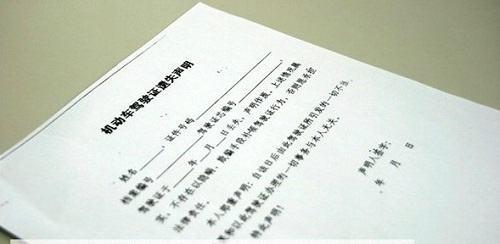 机动车驾驶证遗失声明
姓名______，证件号码______
档案编号______驾驶证芯编号______
驾驶证于____年__月__日丢失，声明作废，上述情况属
实，不存在以欺骗、欺骗手段补领驾驶证行为，否则愿承担
法律责任。
本人郑重声明：自该日后由此驾驶证所引发的一切不法
和以此驾驶证办理的一切事务与本人无关。
特此声明！
声明人签字：
年 月 日